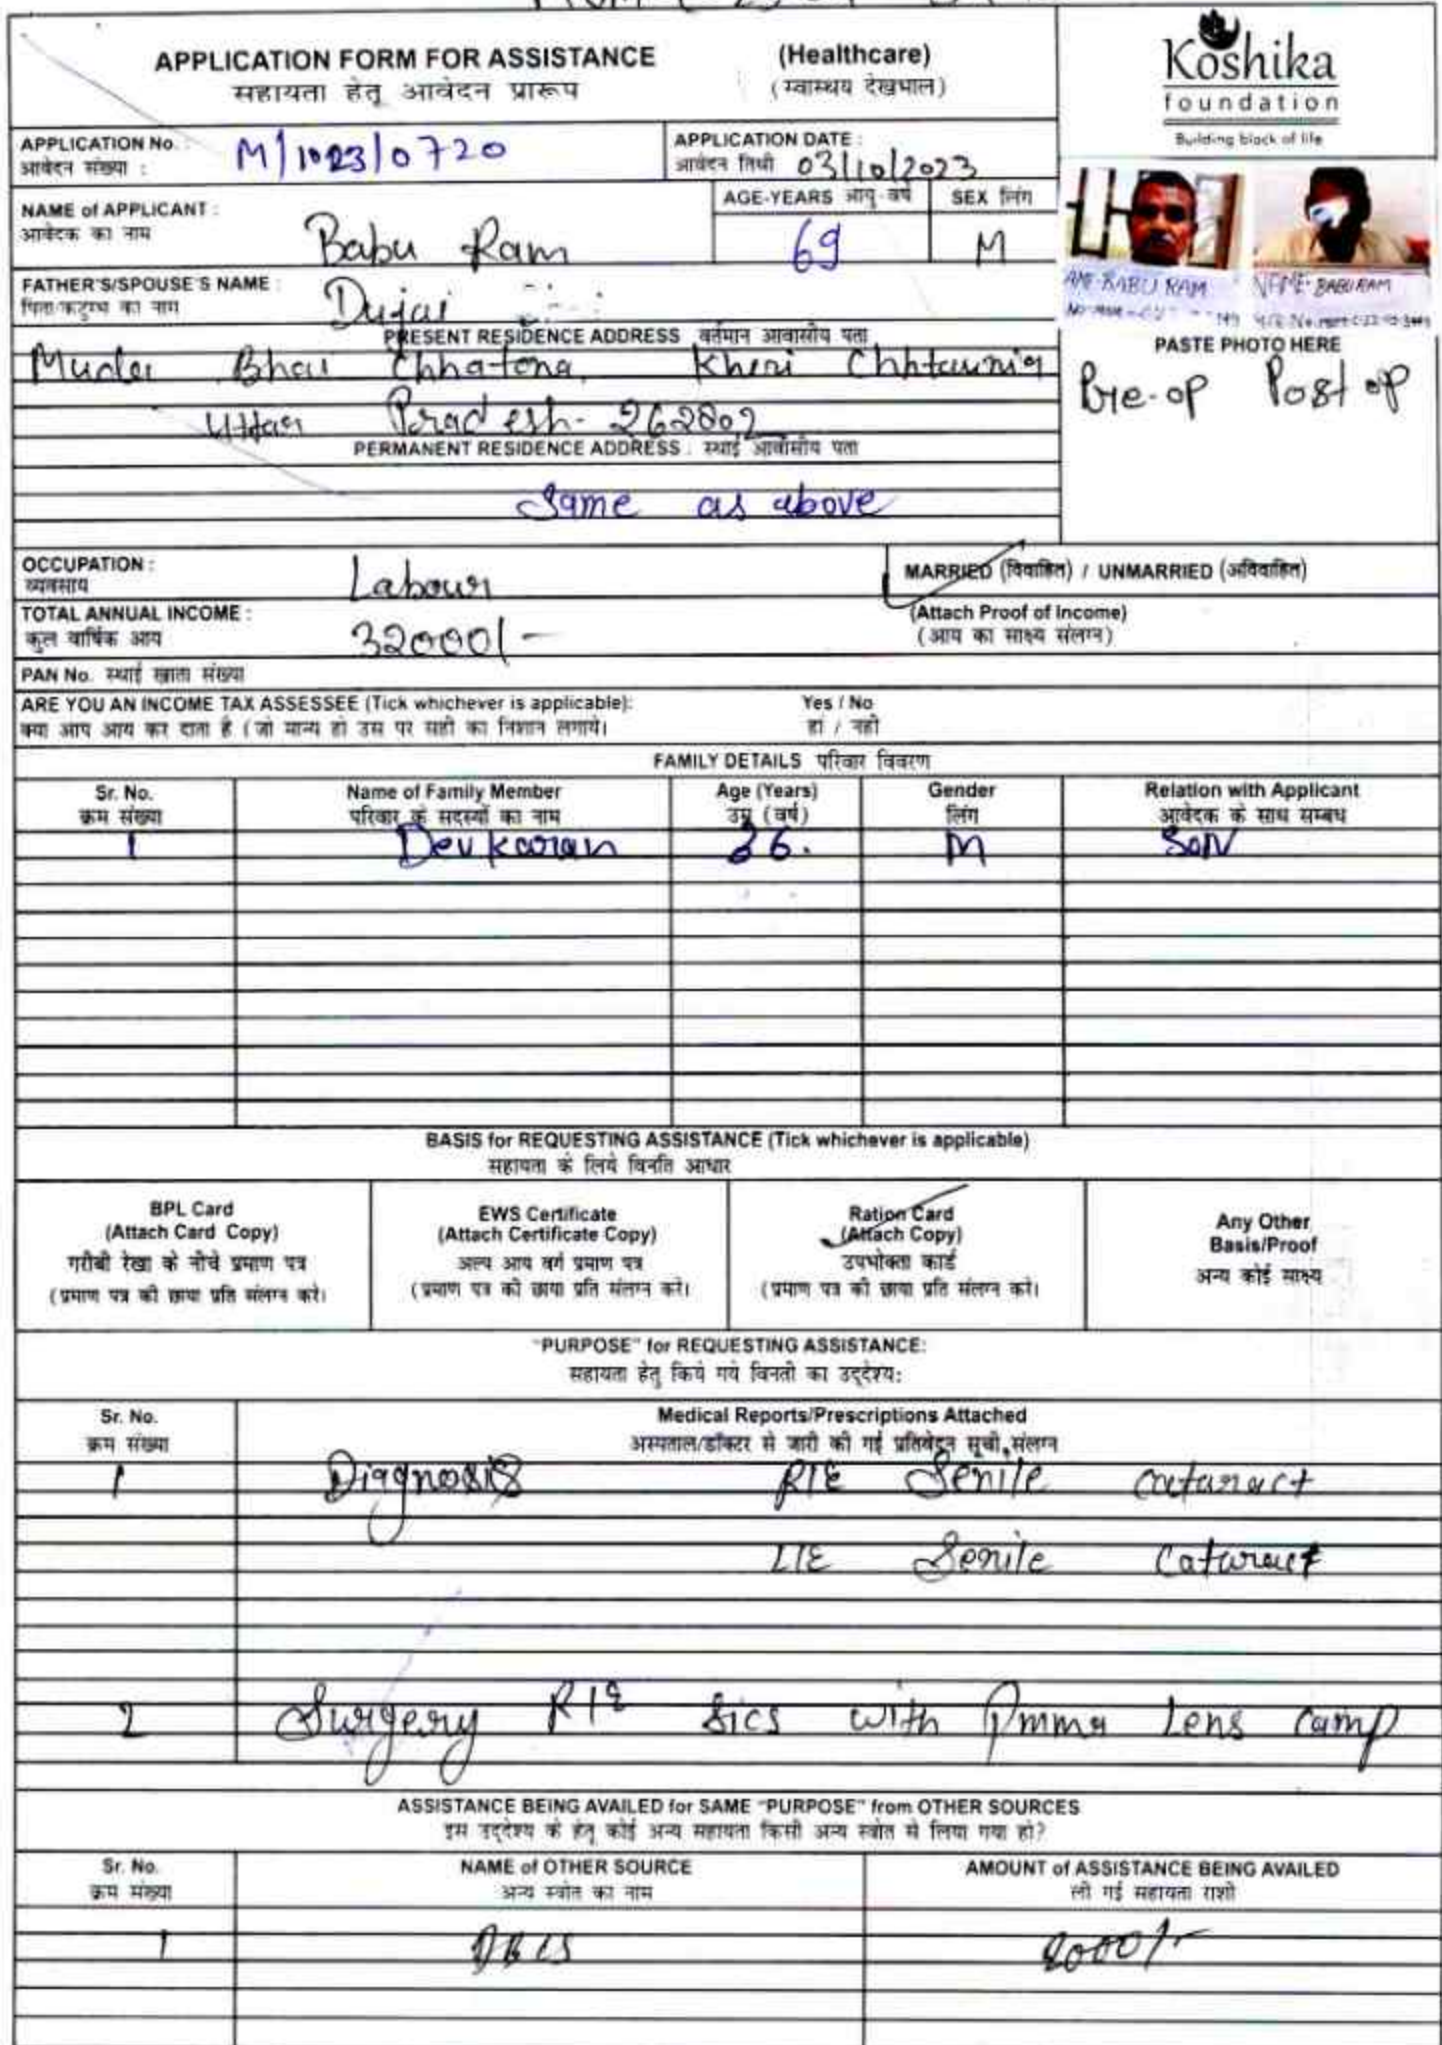 APPLICATION FORM FOR ASSISTANCE (Healthcare)
सहायता हेतू आवेदन प्रारूप (स्वास्थय देखभाल)
Koshika
foundation
Building block of life
APPLICATION No. : M/1023/0720
आवेदन संख्या :
APPLICATION DATE :
आवेदन तिथी 03/10/2023
NAME of APPLICANT :
आवेदक का नाम Babu Ram
AGE-YEARS आयु-वर्ष 69
SEX लिंग M
FATHER'S/SPOUSE'S NAME :
पिता/कटुम्ब का नाम Dujai
NAME-BABURAM
PASTE PHOTO HERE
Pre-op Post op
PRESENT RESIDENCE ADDRESS वर्तमान आवासीय पता
Bhai Chhatona, Kheri
Uttar Pradesh- 262802
PERMANENT RESIDENCE ADDRESS : स्थाई आवासीय पता
Same as above
OCCUPATION :
व्यवसाय Labour
MARRIED (विवाहित) / UNMARRIED (अविवाहित)
TOTAL ANNUAL INCOME :
कुल वार्षिक आय 32000/-
(Attach Proof of Income)
(आय का साक्ष्य संलग्न)
PAN No. स्थाई खाता संख्या
ARE YOU AN INCOME TAX ASSESSEE (Tick whichever is applicable): Yes / No
क्या आप आय कर दाता है (जो मान्य हो उस पर सही का निशान लगाये। हां / नही
FAMILY DETAILS परिवार विवरण
Sr. No. Name of Family Member Age (Years) Gender Relation with Applicant
क्रम संख्या परिवार के सदस्यों का नाम उम्र (वर्ष) लिंग आवेदक के साथ सम्बध
1 Devkaran 36. M Son
BASIS for REQUESTING ASSISTANCE (Tick whichever is applicable)
सहायता के लिये विनति आधार
BPL Card
(Attach Card Copy)
गरीबी रेखा के नीचे प्रमाण पत्र
(प्रमाण पत्र की छाया प्रति संलग्न करे।
EWS Certificate
(Attach Certificate Copy)
अल्प आय वर्ग प्रमाण पत्र
(प्रमाण पत्र की छाया प्रति संलग्न करे।
Ration Card
(Attach Copy)
उपभोक्ता कार्ड
(प्रमाण पत्र की छाया प्रति संलग्न करे।
Any Other
Basis/Proof
अन्य कोई साक्ष्य
"PURPOSE" for REQUESTING ASSISTANCE:
सहायता हेतु किये गये विनती का उद्देश्य:
Sr. No. Medical Reports/Prescriptions Attached
क्रम संख्या अस्पताल/डॉक्टर से जारी की गई प्रतिवेदन सूची संलग्न
1 Diagnosis R/E Senile cataract
L/E Senile Cataract
2 Surgery R/E Sics with Pmma Lens Camp
ASSISTANCE BEING AVAILED for SAME "PURPOSE" from OTHER SOURCES
इस उद्देश्य के हेतू कोई अन्य सहायता किसी अन्य स्त्रोत से लिया गया हो?
Sr. No. NAME of OTHER SOURCE AMOUNT of ASSISTANCE BEING AVAILED
क्रम संख्या अन्य स्त्रोत का नाम ली गई सहायता राशी
1 DBCS 2000/-